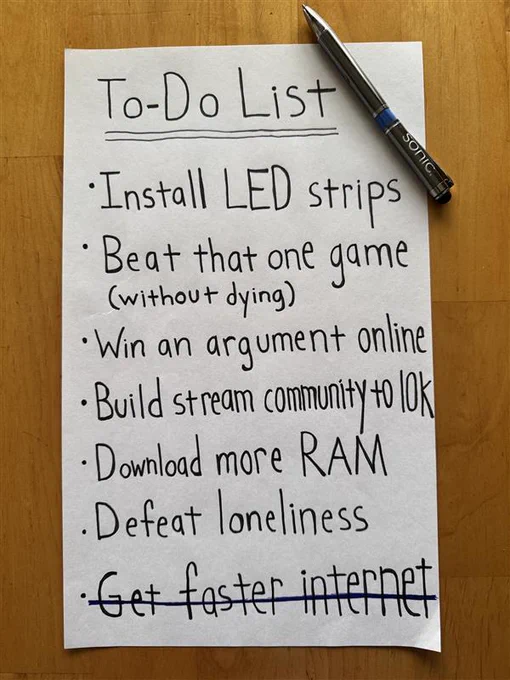 To-Do List
• Install LED strips
• Beat that one game
(without dying)
• Win an argument online
• Build stream community to 10K
• Download more RAM
• Defeat loneliness
• Get faster internet
sonic.